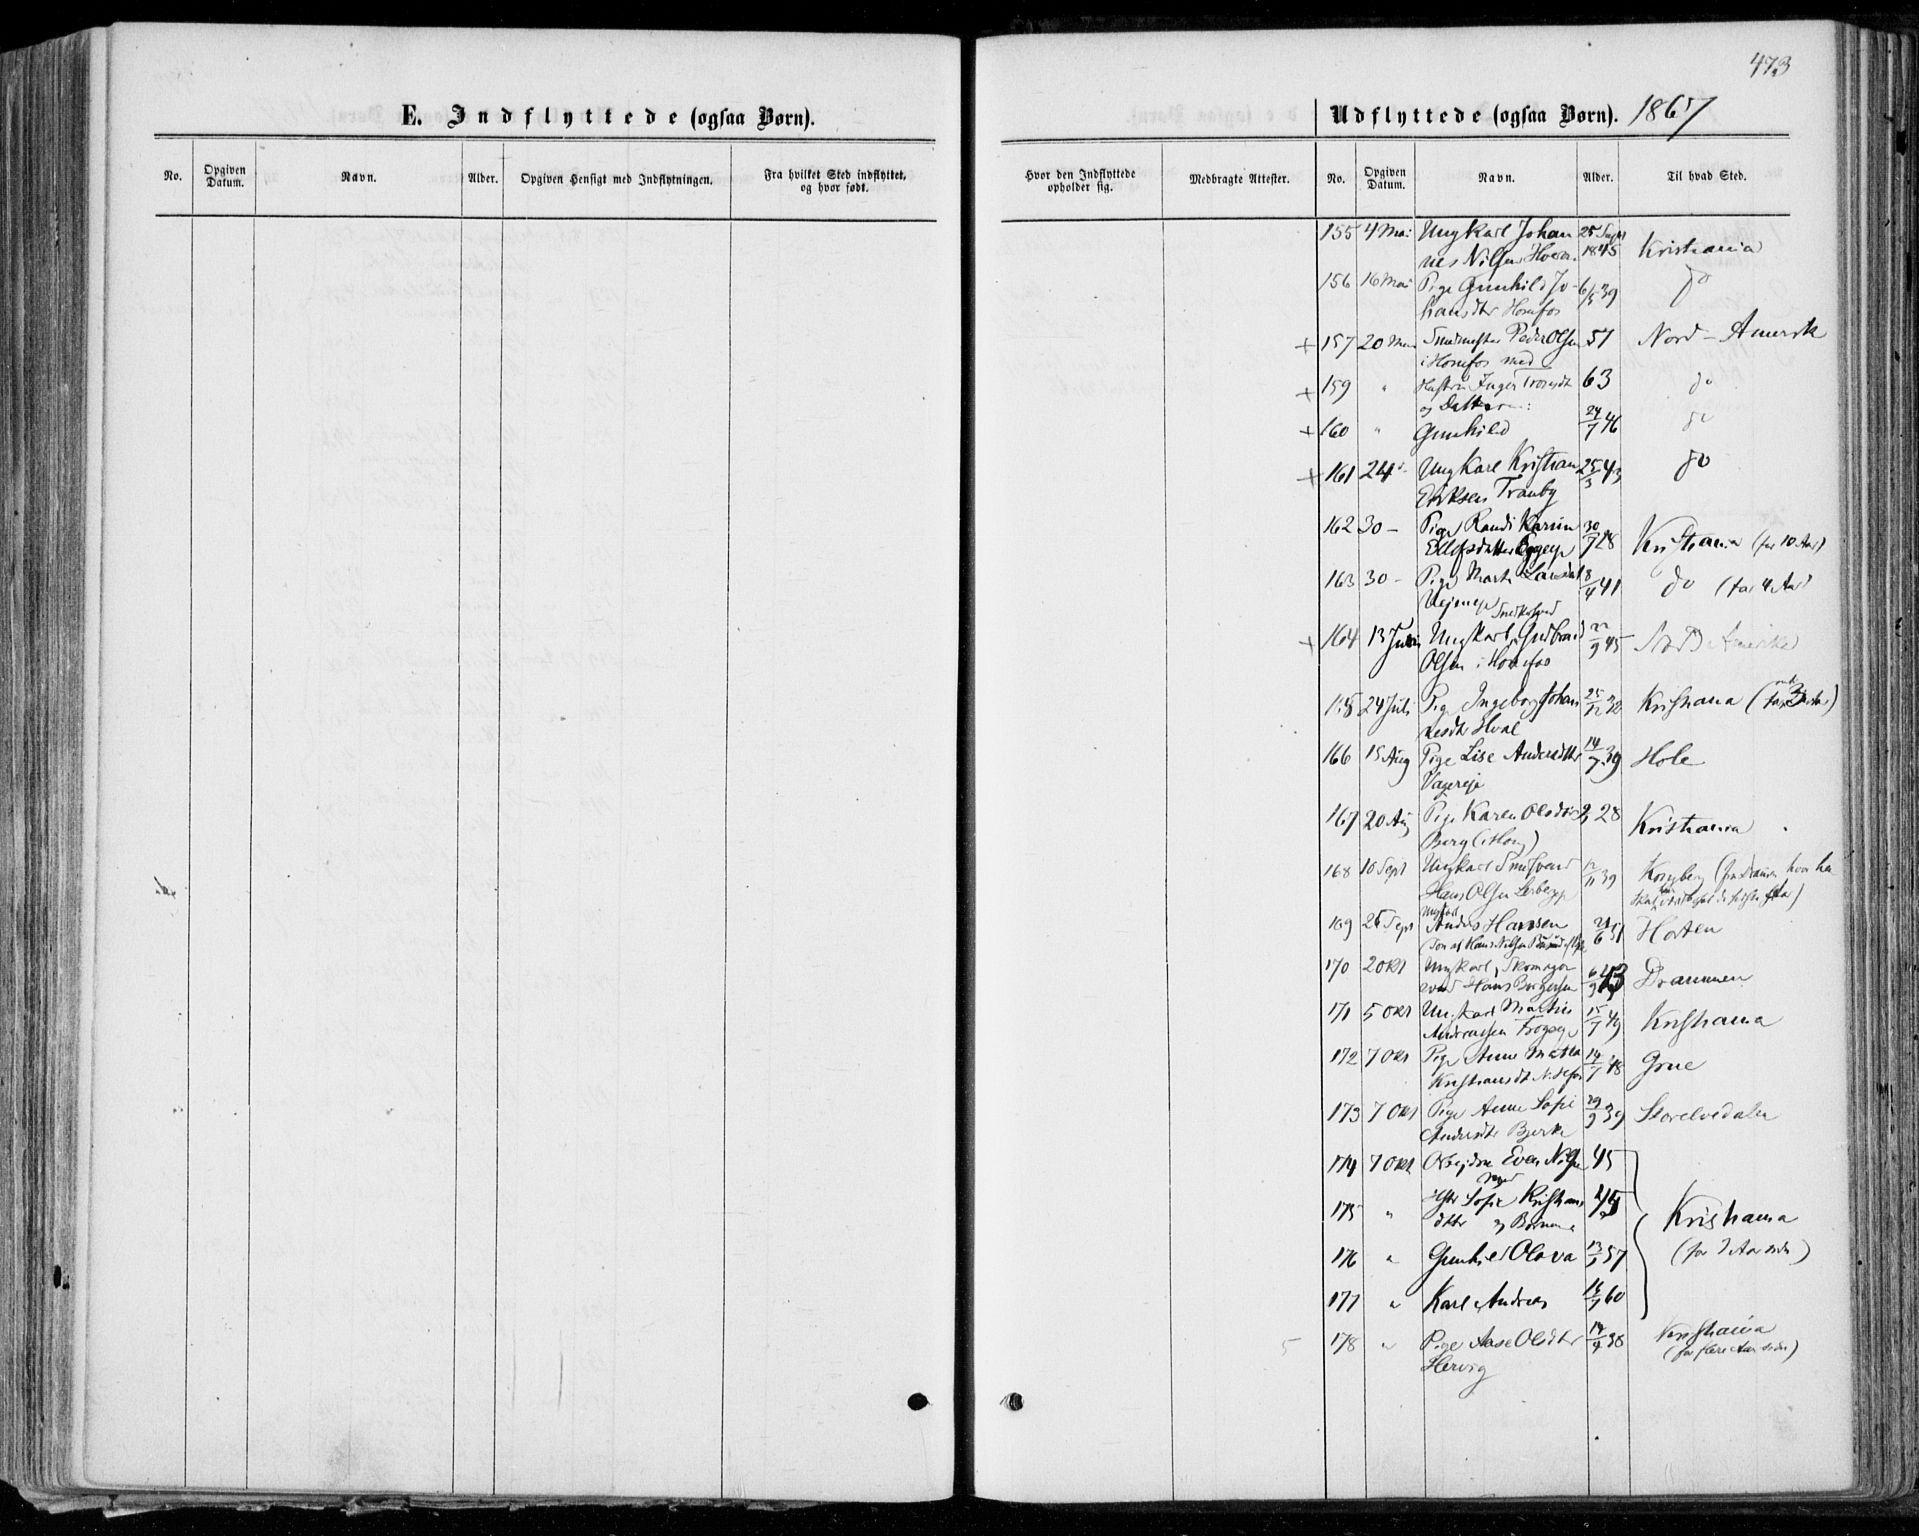 473
E. Indflyttede (ogsaa Børn).
Udflyttede (ogsaa Børn). 1867
No.
Opgiven Datum.
Navn.
Alder.
Opgiven Hensigt med Indflytningen.
Fra hvilket Sted indflyttet, og hvor født.
Hvor den Indflyttede opholder sig.
Medbragte Attester.
No.
Opgiven Datum.
Navn.
Alder.
Til hvad Sted.
155 4 Mai Ungkarl Johan 25 Sept
nes Nilsen 1845 Kristiania
156 16 Mai Pige Gunhild Jo- 6/5 39 do
hansdtr Honefos
+ 157 20 Mai Smedmester Peder Olsen 57 Nord-Amerik
i Honefos med
+ 159 " Hustru Inger 63 do
og Datteren:
+ 160 " Gunhild 24/7 46 do
+ 161 24 Ungkarl Kristian 25/3 43 do
Eriksen Tranby
162 30 – Pige Randi Karine 30/7 28 Kristiania (for 10 Aar)
Ellefsdatter Eggeeje
163 30 – Pige Marte Larsdt 18/4 41 do (for 4 Aar)
Vejeneje
Smedsvend
+ 164 13 Juni Ungkarl Gudbrand 22/9 45 Nord Amerika
Olsen i Honefos
165 24 Juli Pige Ingeborg Johan 25/12 32 Kristiania (for 3 Aar)
nesdt Hval
166 15 Aug Pige Lise Andersdtter 14/7 39 Hole
Vagereje
167 20 Aug Pige Karen Olsdtr 28 Kristiania
Berg (i Haug)
168 10 Sept Ungkarl Smedsvend 12/11 39 Kongberg (fra Drammen hvor han
Hans Olsen
Ungkarl
169 25 Sept Anders Hanssen 21/6 51 Horten
(Søn af Hans Nilsen
170 2 Okt Ungkarl, Skomager 6/9 43 Drammen
svend Hans Borgersen
171 5 Okt Ungkarl Martin 15/7 49 Kristiania
Andreassen Frogeje
172 7 Okt Pige Anne Matea 14/7 48 Grue
Kristiansdt
173 7 Okt Pige Anne Sofie 29/9 39 Storelvedalen
Andersdtr Bjerke
174 7 Okt Arbejdsm Even Nilsen 45
med
175 " Hstr Sofie Kristians 45 Kristiania
dtter og Børnene
176 " Gunhild Olava 13/5 57 (for 7 Aar siden)
177 " Karl Andreas 16/7 60
178 " Pige Aase Olsdtr 14/4 38 Kristiania
Hervig (for flere Aar siden)